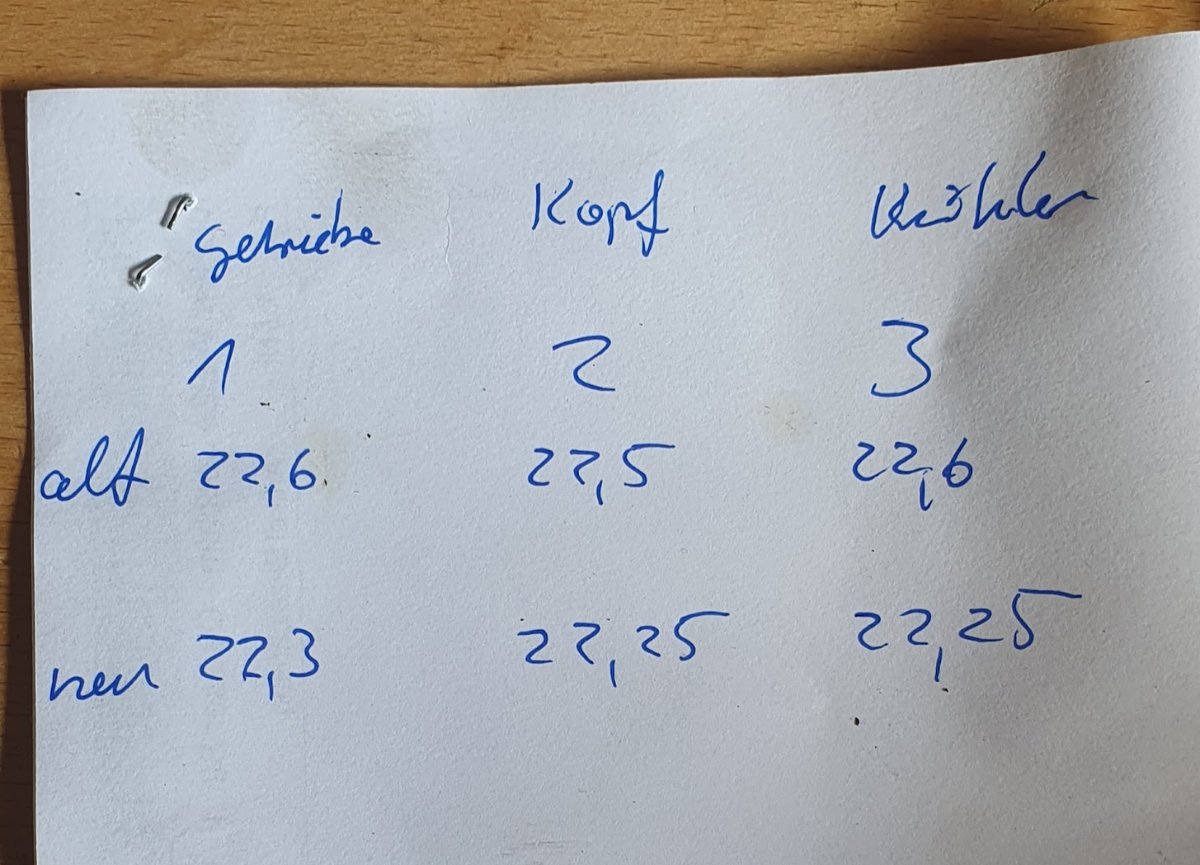 Getriebe Kopf Kühler
1 2 3
alt 22,6 22,5 22,6
neu 22,3 22,25 22,25